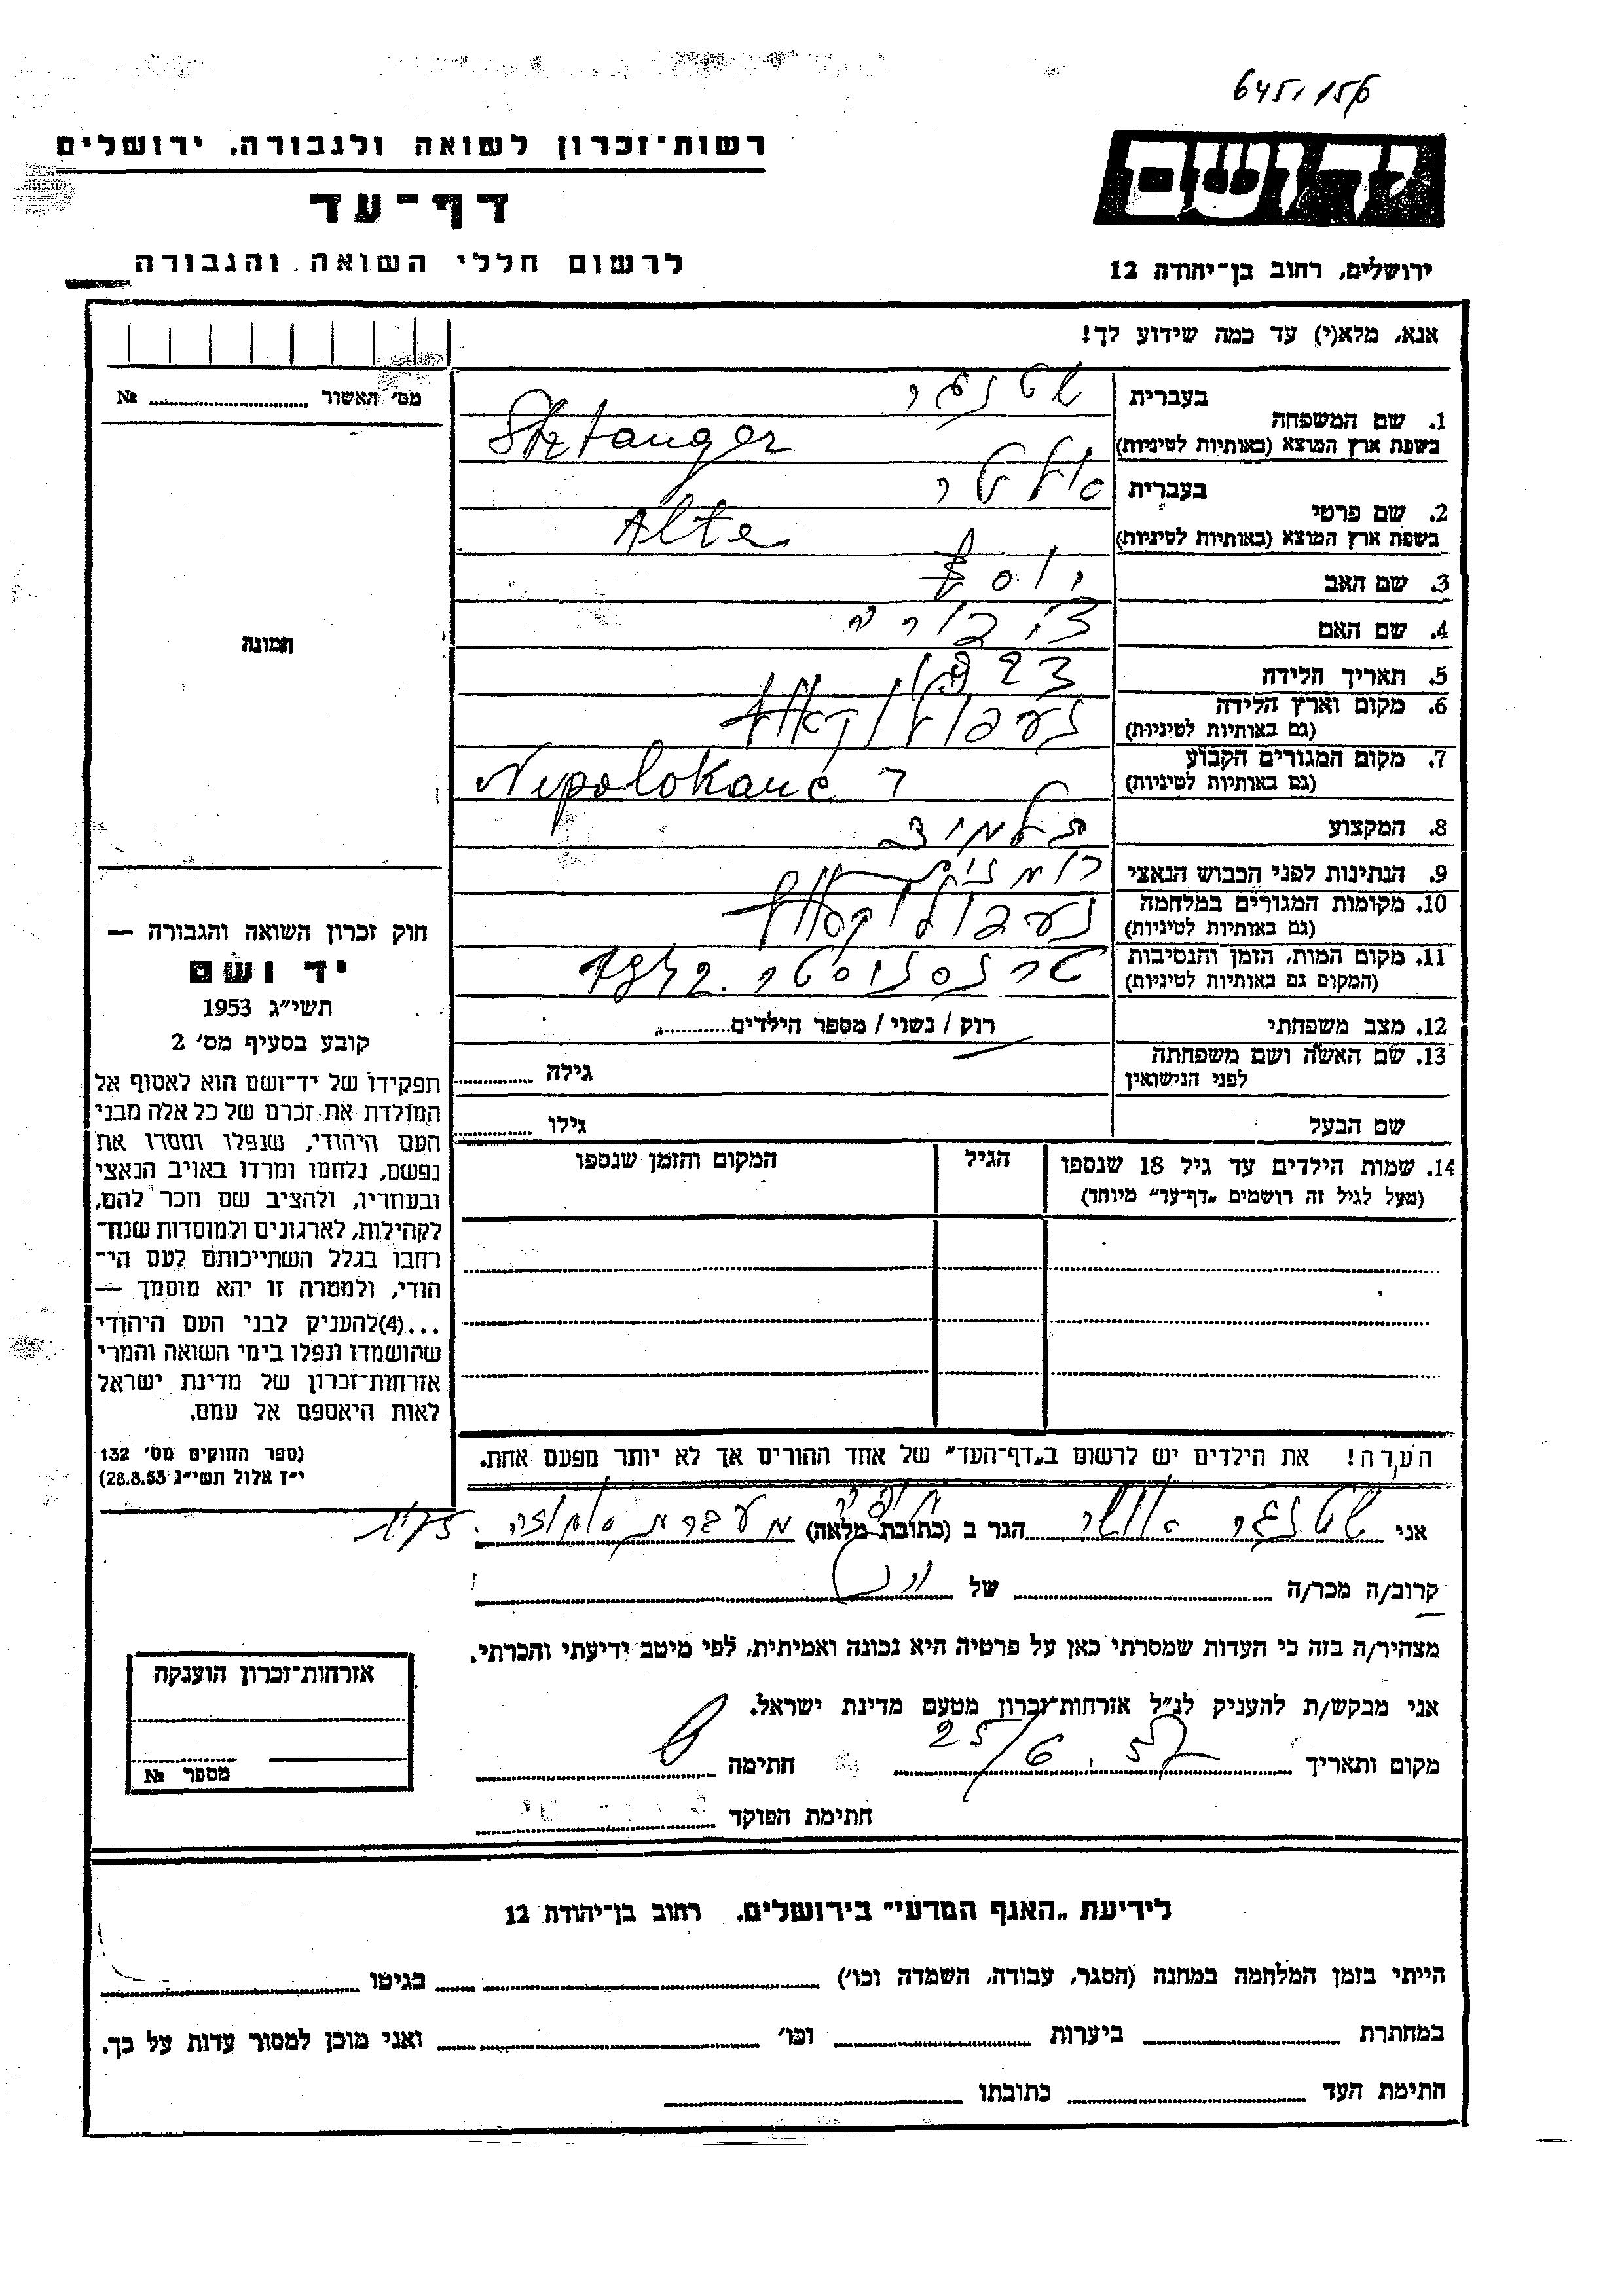 645/156
רשות־זכרון לשואה ולגבורה, ירושלים
דף־עד
לרשום חללי השואה והגבורה
יד ושם
ירושלים, רחוב בן־יהודה 12
אנא, מלא(י) עד כמה שידוע לך!
מס׳ האשור № ..........
1. שם המשפחה בעברית שטנגר
בשפת ארץ המוצא (באותיות לטיניות) Shtanger
2. שם פרטי בעברית אלטר
בשפת ארץ המוצא (באותיות לטיניות) Alte
3. שם האב יוסף
4. שם האם
5. תאריך הלידה 1923
6. מקום וארץ הלידה
(גם באותיות לטיניות)
7. מקום המגורים הקבוע Nepolokane
(גם באותיות לטיניות)
8. המקצוע תלמיד
9. הנתינות לפני הכבוש הנאצי רומנית
10. מקומות המגורים במלחמה
(גם באותיות לטיניות)
11. מקום המות, הזמן והנסיבות טרנסניסטר. 1942
(המקום גם באותיות לטיניות)
12. מצב משפחתי רוק / נשוי / מספר הילדים..........
13. שם האשה ושם משפחתה לפני הנישואין גילה ..........
שם הבעל גילו ..........
14. שמות הילדים עד גיל 18 שנספו
(מעל לגיל זה רושמים „דף־עד״ מיוחד)
הגיל
המקום והזמן שנספו
הערה! את הילדים יש לרשום ב„דף־העד״ של אחד ההורים אך לא יותר מפעם אחת.
תמונה
חוק זכרון השואה והגבורה —
יד ושם
תשי״ג 1953
קובע בסעיף מס׳ 2
תפקידו של יד־ושם הוא לאסוף אל
המולדת את זכרם של כל אלה מבני
העם היהודי, שנפלו ומסרו את
נפשם, נלחמו ומרדו באויב הנאצי
ובעוזריו, ולהציב שם וזכר להם,
לקהילות, לארגונים ולמוסדות שנח־
רבו בגלל השתייכותם לעם הי־
הודי, ולמטרה זו יהא מוסמך —
...(4)להעניק לבני העם היהודי
שהושמדו ונפלו בימי השואה והמרי
אזרחות־זכרון של מדינת ישראל
לאות היאספם אל עמם.
(ספר החוקים מס׳ 132
י״ז אלול תשי״ג 28.8.53)
אני שטנגר אשר הגר ב (כתובת מלאה) מעברת
קרוב/ה מכר/ה .......... של ..........
מצהיר/ה בזה כי העדות שמסרתי כאן על פרטיה היא נכונה ואמיתית, לפי מיטב ידיעתי והכרתי.
אני מבקש/ת להעניק לנ״ל אזרחות־זכרון מטעם מדינת ישראל.
מקום ותאריך 25/6.57 חתימה
חתימת הפוקד ..........
אזרחות־זכרון הוענקה
מספר №
לידיעת „האגף המדעי״ בירושלים, רחוב בן־יהודה 12
הייתי בזמן המלחמה במחנה (הסגר, עבודה, השמדה וכו׳) .......... בגיטו ..........
במחתרת .......... ביערות .......... וכו׳ .......... ואני מוכן למסור עדות על כך.
חתימת העד .......... כתובתו ..........